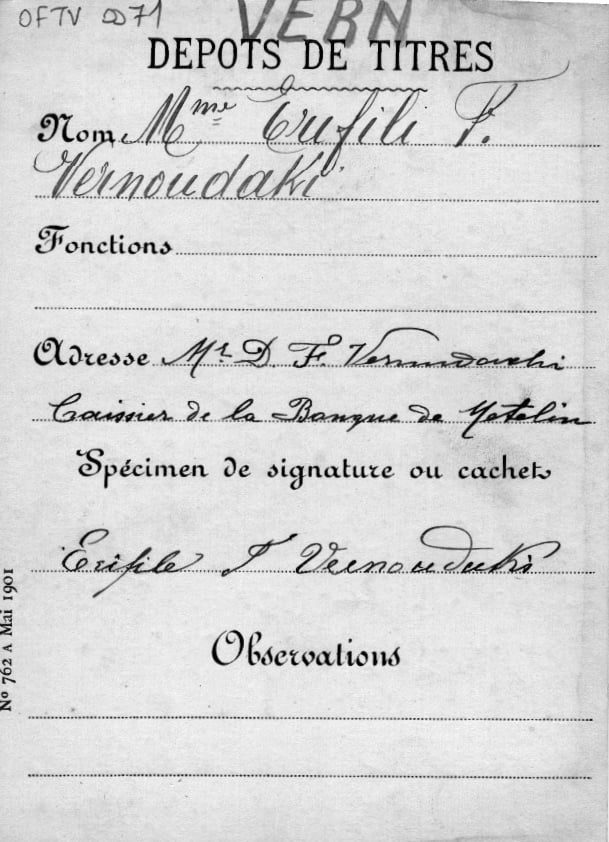 OFTV 0071
VERN
DEPOTS DE TITRES
Nom Mme Erifili F.
Vernoudaki
Fonctions
Adresse Mr. D. F. Vernudachi
Caissier de la Banque de Metelin
Spécimen de signature ou cachet
Erifile F Vernoudaki
Observations
No 762 A Mai 1901